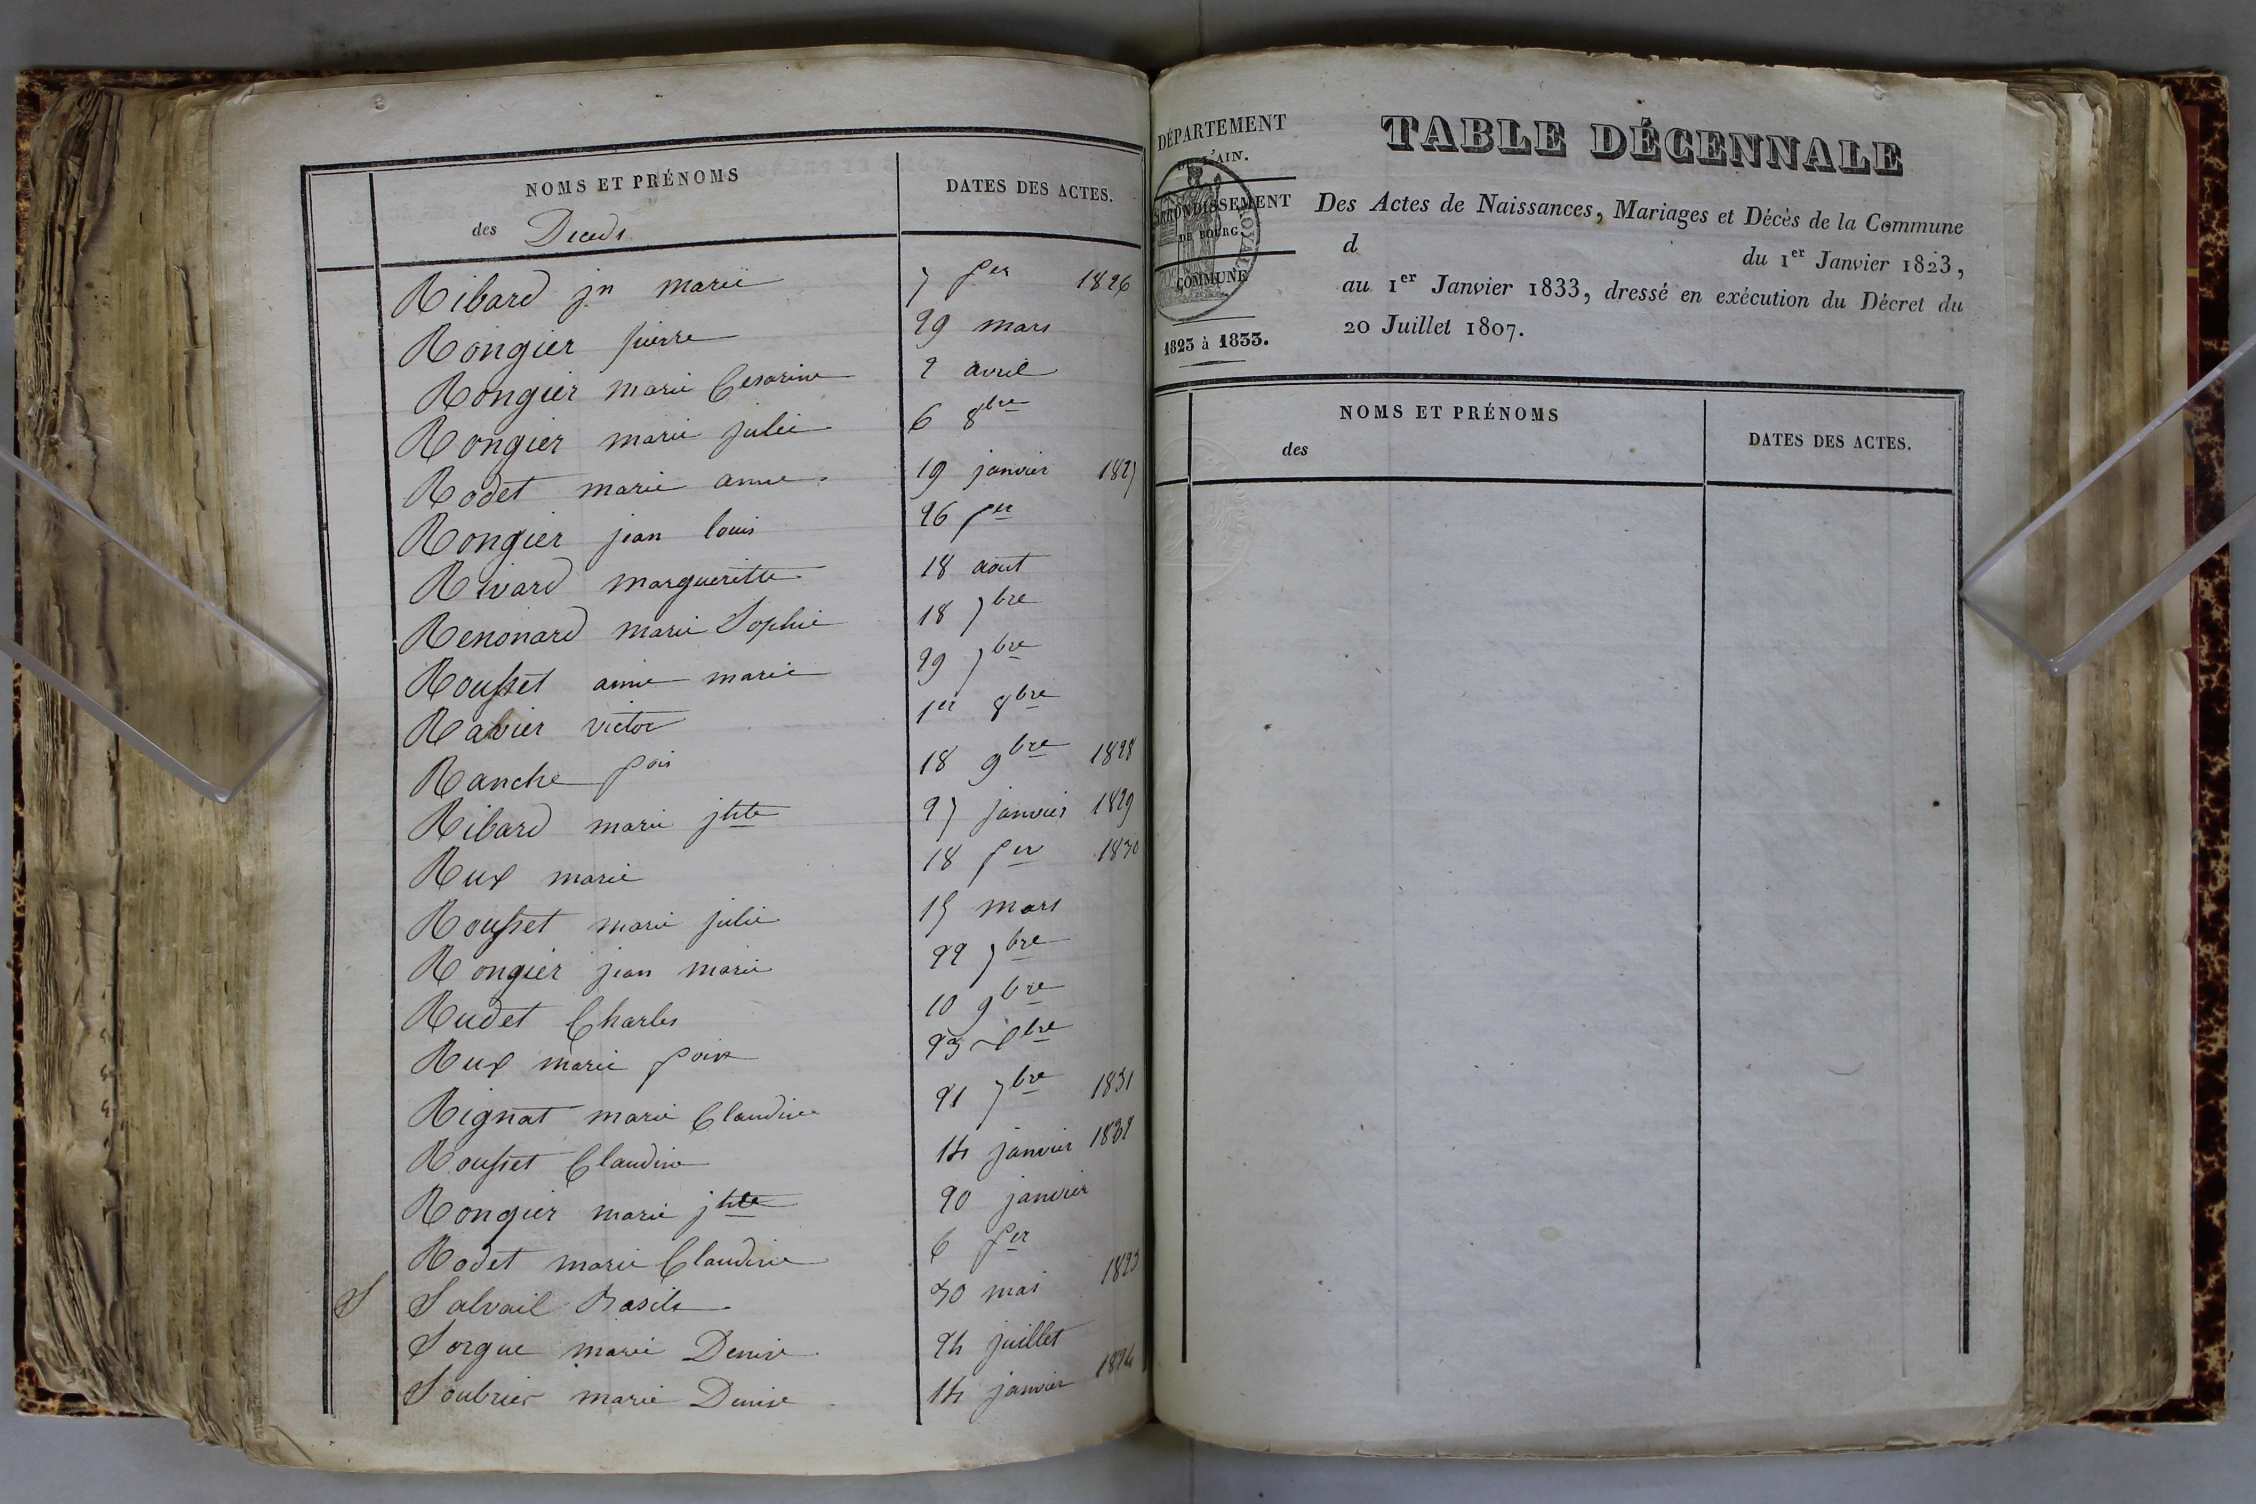 NOMS ET PRÉNOMS
DATES DES ACTES.
des Deceds
Ribard jn marie 7 fer 1826
Rongier pierre 29 mars
Rongier marie Cesarine 2 avril
Rongier marie julie 6 8bre
Rodet marie anne 19 janvier 1827
Rongier jean louis 26 fer
Rivard margueritte 18 aout
Renonard marie Sophie 18 7bre
Rousset aimé marie 29 7bre
Ravier victor 1er 8bre
Ranche fois 18 9bre 1828
Ribard marie jtite 27 janvier 1829
Rux marie 18 fer 1830
Rousset marie julie 15 mars
Rongier jean marie 22 7bre
Rudet Charles 10 9bre
Rux marie foise 23 Xbre
Rignat marie Claudine 21 7bre 1831
Rousset Claudine 14 janvier 1832
Rongier marie jtite 20 janvier
Rodet marie Claudine 6 fer
S Salvail Basile 30 mai 1823
Sorgue marie Denise 24 juillet
Soubrier marie Denise 14 janvier 1824
DÉPARTEMENT
DE L'AIN.
ARRONDISSEMENT
DE BOURG.
COMMUNE
1823 à 1833.
TABLE DÉCENNALE
Des Actes de Naissances, Mariages et Décès de la Commune
d du 1er Janvier 1823,
au 1er Janvier 1833, dressé en exécution du Décret du
20 Juillet 1807.
NOMS ET PRÉNOMS
des
DATES DES ACTES.